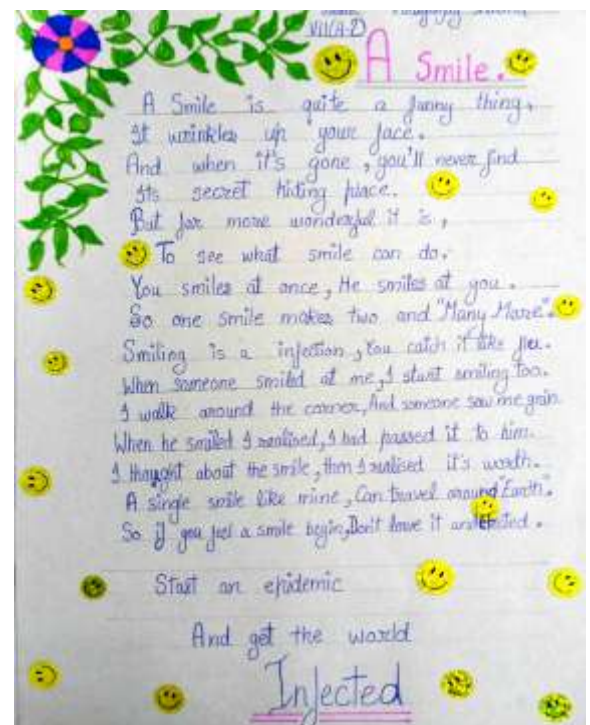 VII(A-2)
A Smile.
A Smile is quite a funny thing,
It wrinkles up your face.
And when it's gone, you'll never find
Its secret hiding place.
But far more wonderful it is,
To see what smile can do.
You smiles at once, He smiles at you.
So one smile makes two and "Many More".
Smiling is a infection, You catch it like flu.
When someone smiled at me, I start smiling too.
I walk around the corner, And someone saw me grain
When he smiled I realised, I had passed it to him.
I thought about the smile, then I realised it's worth.
A single smile like mine, Can travel around "Earth".
So if you feel a smile begin, Don't leave it
Start an epidemic
And get the world
Injected